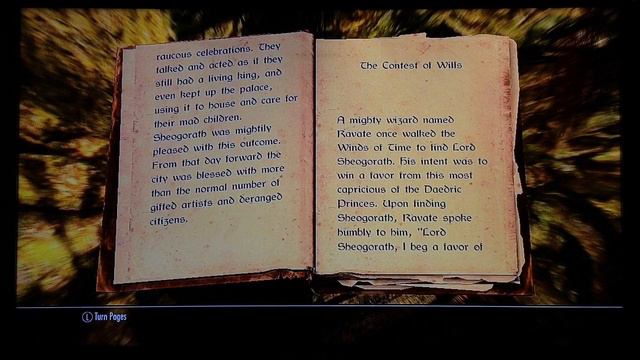 raucous celebrations. They
talked and acted as if they
still had a living king, and
even kept up the palace,
using it to house and care for
their mad children.
Sheogorath was mightily
pleased with this outcome.
From that day forward the
city was blessed with more
than the normal number of
gifted artists and deranged
citizens.
The Contest of Wills
A mighty wizard named
Ravate once walked the
Winds of Time to find Lord
Sheogorath. His intent was to
win a favor from this most
capricious of the Daedric
Princes. Upon finding
Sheogorath, Ravate spoke
humbly to him, "Lord
Sheogorath, I beg a favor of
L Turn Pages